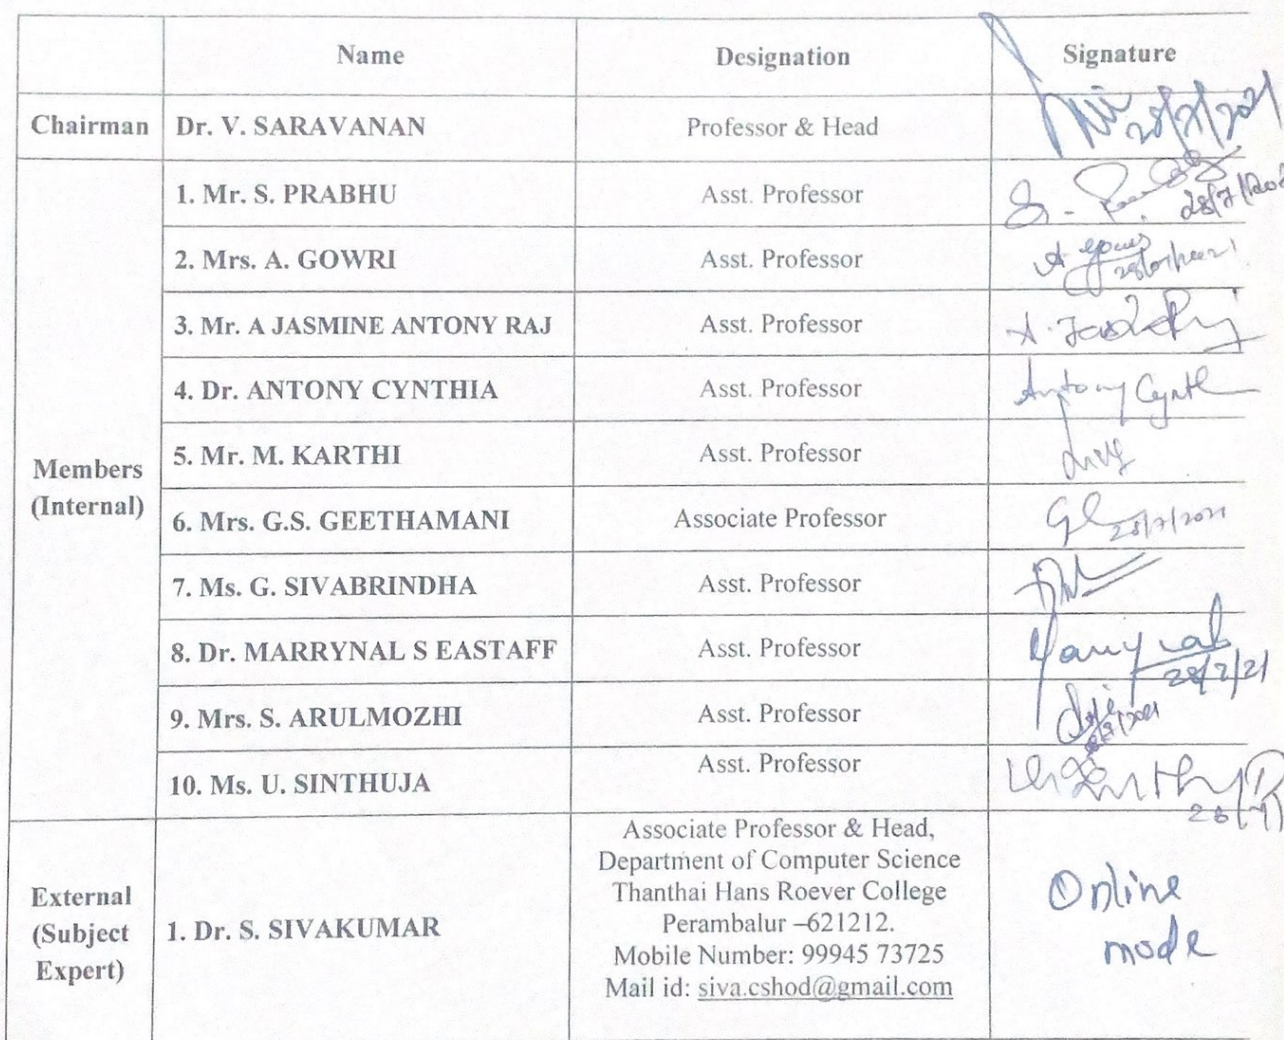 Name Designation Signature
Chairman Dr. V. SARAVANAN Professor & Head 28/7/2021
1. Mr. S. PRABHU Asst. Professor S. 28/7/202
2. Mrs. A. GOWRI Asst. Professor A gowri
28/07/2021
3. Mr. A JASMINE ANTONY RAJ Asst. Professor
4. Dr. ANTONY CYNTHIA Asst. Professor Antony Cynth
5. Mr. M. KARTHI Asst. Professor
Members
(Internal)
6. Mrs. G.S. GEETHAMANI Associate Professor 28/7/2021
7. Ms. G. SIVABRINDHA Asst. Professor
8. Dr. MARRYNAL S EASTAFF Asst. Professor Marrynal
28/7/21
9. Mrs. S. ARULMOZHI Asst. Professor
10. Ms. U. SINTHUJA Asst. Professor
External
(Subject
Expert)
1. Dr. S. SIVAKUMAR
Associate Professor & Head,
Department of Computer Science
Thanthai Hans Roever College
Perambalur –621212.
Mobile Number: 99945 73725
Mail id: siva.cshod@gmail.com
Online
mode